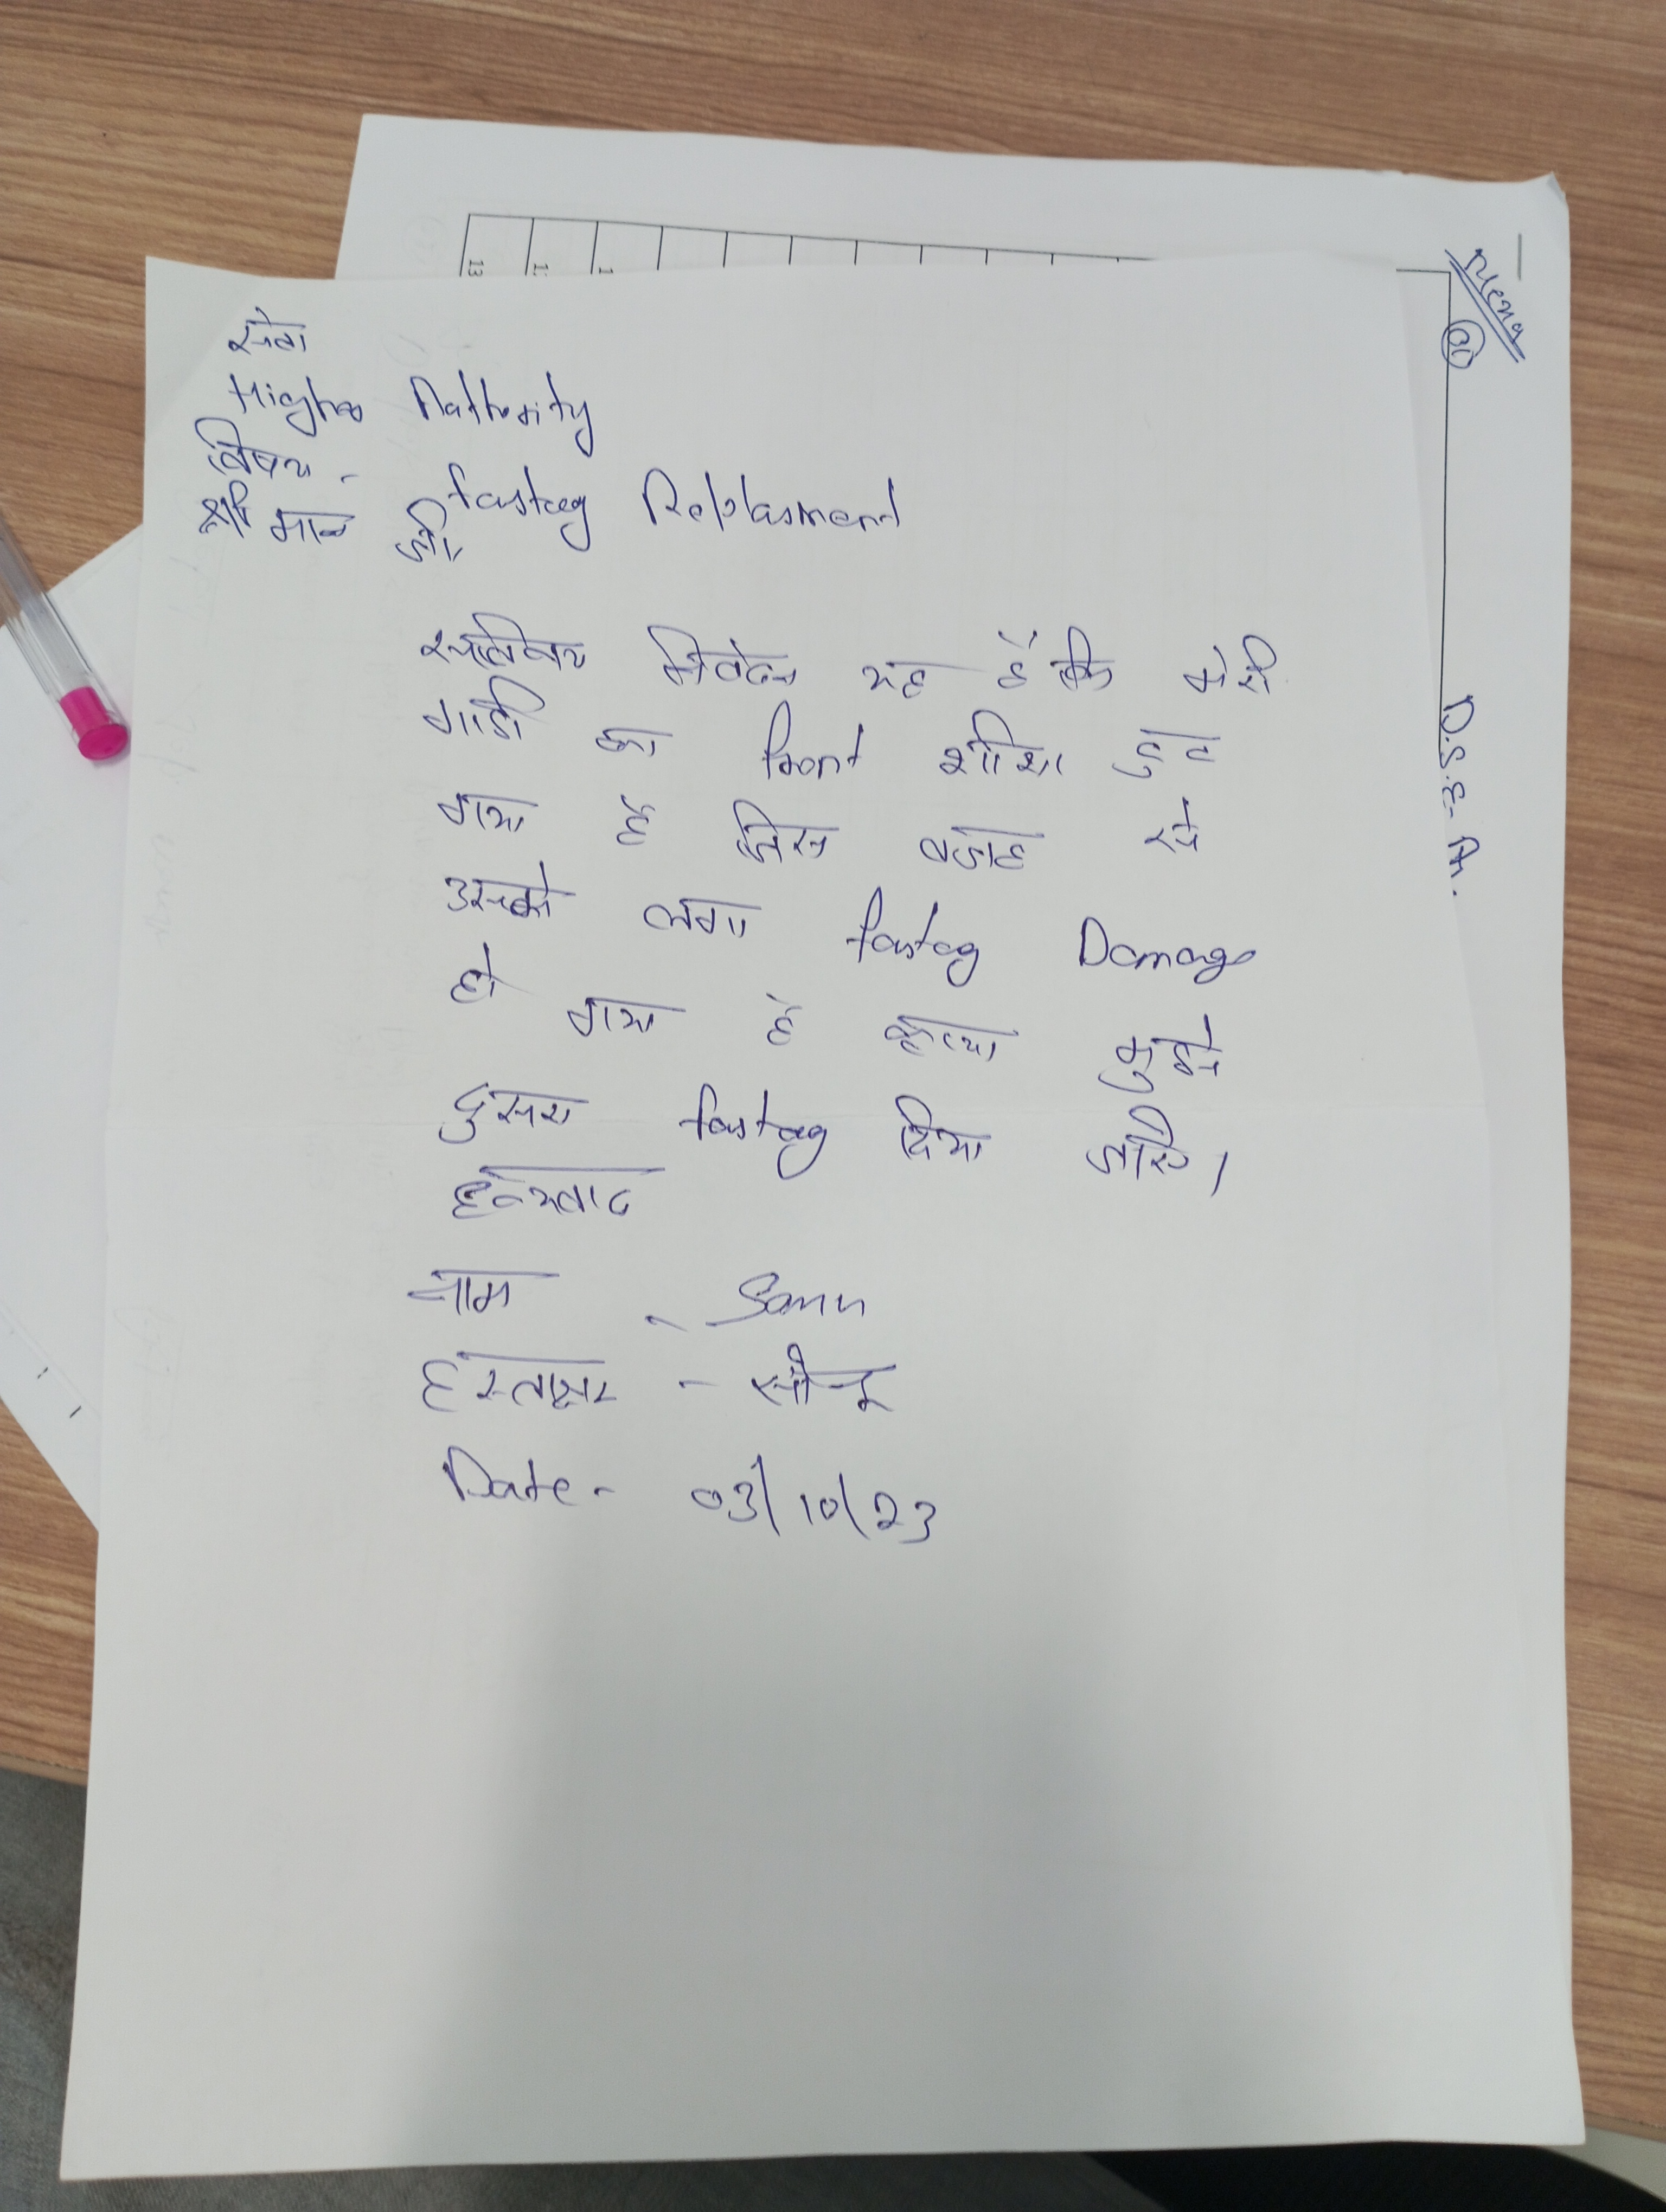 सेवा
Higher Authority
विषय - fastag Replasment
श्री मान जी,
सविनय निवेदन यह है कि मेरी
गाडी का front शीशा टुट
गया है जिस वजह से
उसको लगा fastag Damage
हो गया है कृप्या मुझे
दुसरा fastag दिया जाए।
धन्यवाद
नाम - Sonu
हस्ताक्षर - सोनू
Date - 03/10/23
D.S.E-
13